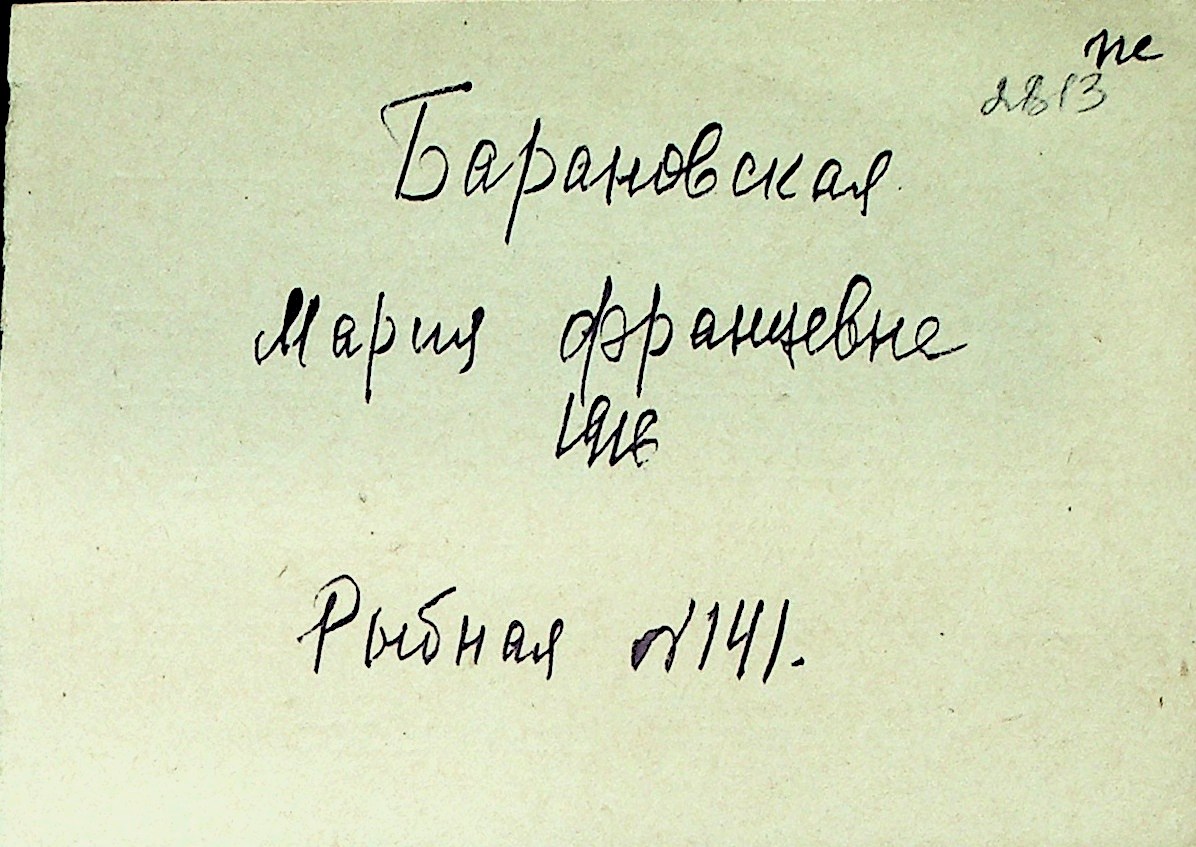 2813
Барановская
Мария Францевне
1916
Рыбная №141.